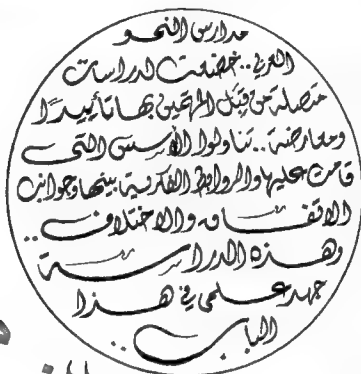 مدارس النحو
العربي.. خضعت لدراسات
متصلة من قِبَل المهتمين بها تأييدًا
ومعارضة.. تناولوا الأسس التى
قامت عليها والروابط الفكرية بينها وجوانب
الاتفاق والاختلاف..
وهذه الدراسة
جهد علمى فى هذا
الباب..